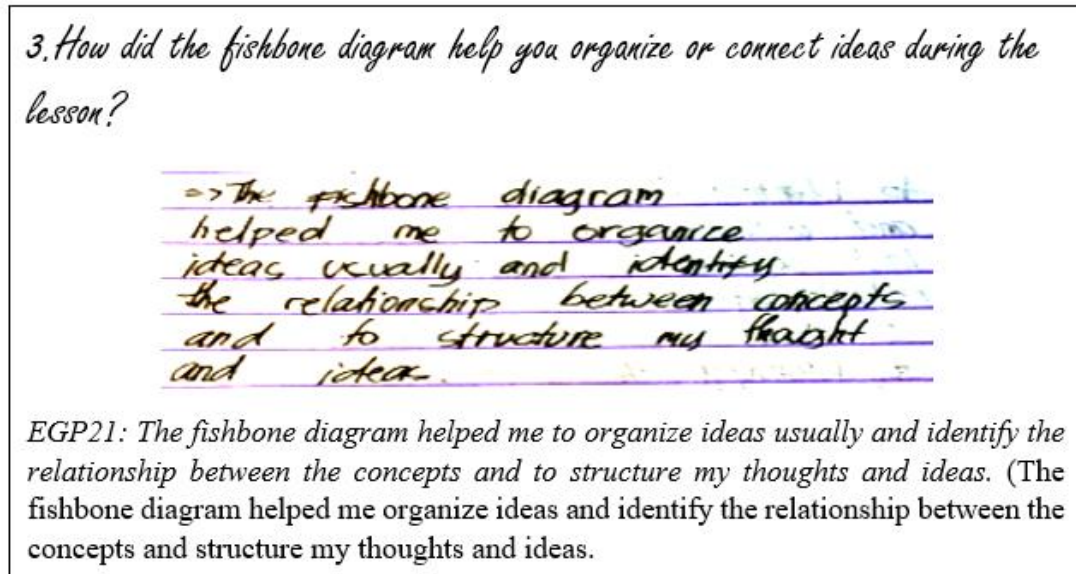 3. How did the fishbone diagram help you organize or connect ideas during the
lesson?
=> The fishbone diagram
helped me to organice
ideas ucually and identify
the relationship between concepts
and to structure my thaught
and ideas.
EGP21: The fishbone diagram helped me to organize ideas usually and identify the
relationship between the concepts and to structure my thoughts and ideas. (The
fishbone diagram helped me organize ideas and identify the relationship between the
concepts and structure my thoughts and ideas.